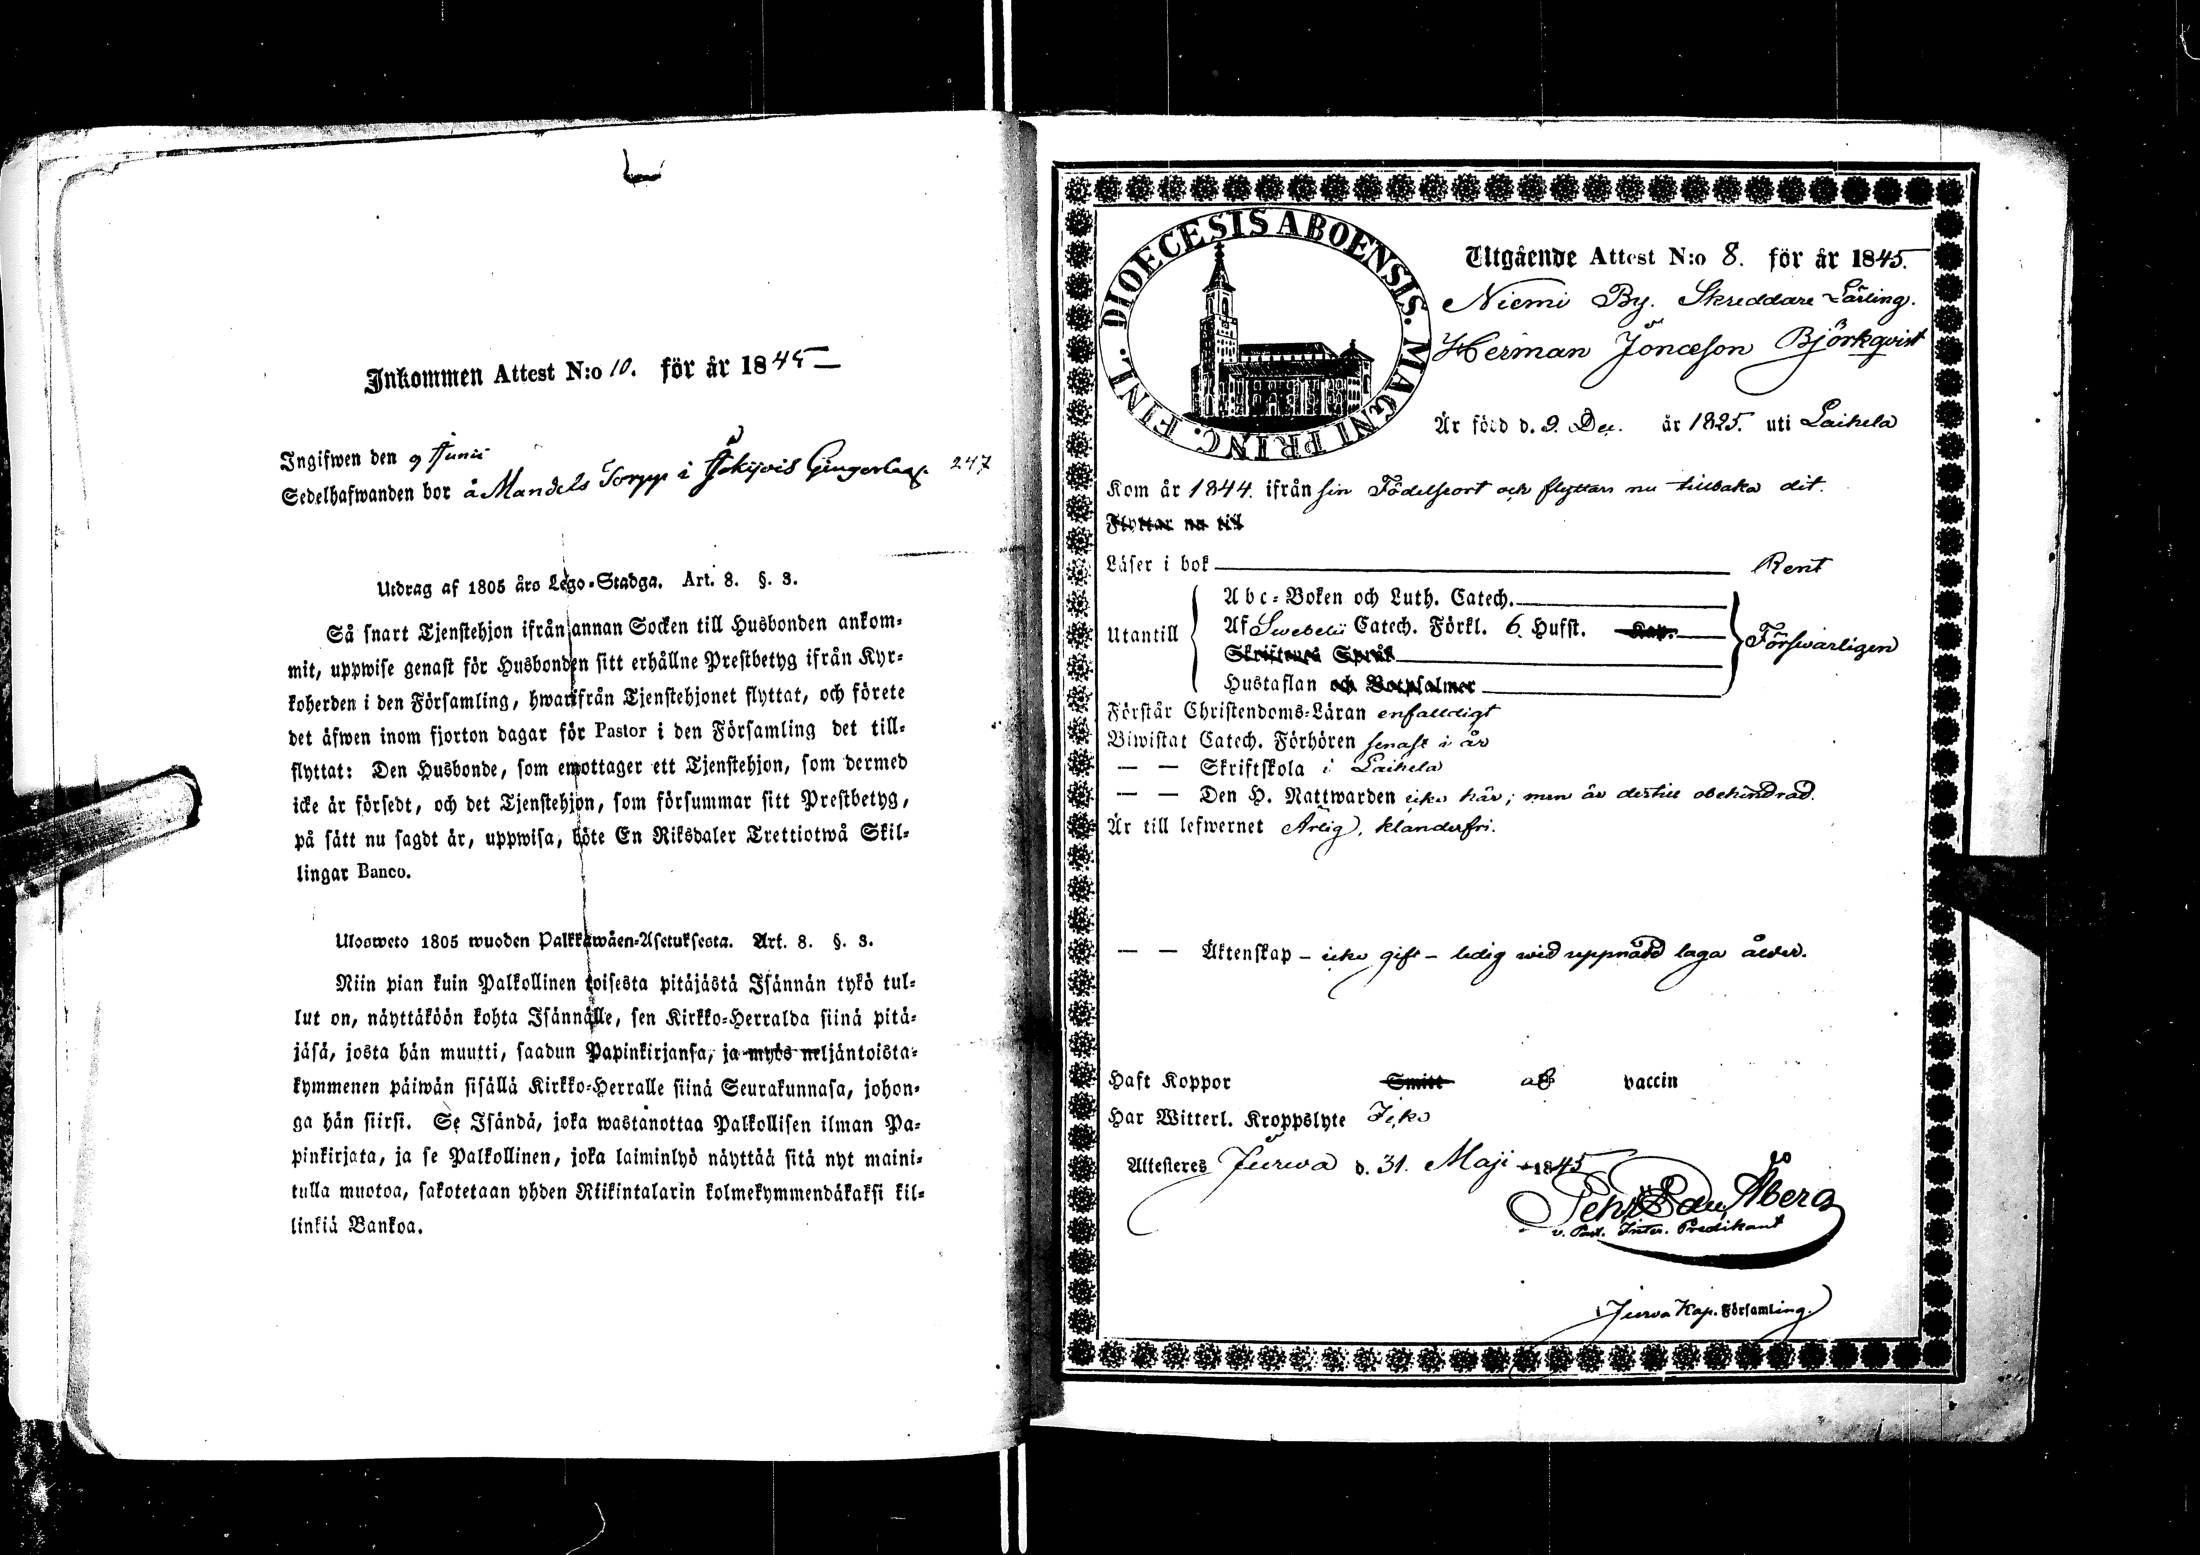 Inkommen Attest N:o 10. för år 1845
Ingifwen den 9 Junii
Sedelhafwanden bor å Mandels Torpp i 247
Utdrag af 1805 års Lego-Stadga. Art. 8. §. 3.
Så snart Tjenstehjon ifrån annan Socken till Husbonden ankom-
mit, uppwise genast för Husbonden sitt erhållne Prestbetyg ifrån Kyr-
koherden i den Församling, hwarifrån Tjenstehjonet flyttat, och förete
det äfwen inom fjorton dagar för Pastor i den Församling det till-
flyttat: Den Husbonde, som emottager ett Tjenstehjon, som dermed
icke är försedt, och det Tjenstehjon, som försummar sitt Prestbetyg,
på sätt nu sagdt är, uppwisa, böte En Riksdaler Trettiotwå Skil-
lingar Banco.
Ulosweto 1805 wuoden Palkkawäen-Asetuksesta. Art. 8. §. 3.
Niin pian kuin Palkollinen toisesta pitäjästä Isännän tykö tul-
lut on, näyttäköön kohta Isännälle, sen Kirkko-Herralda siinä pitä-
jäsä, josta hän muutti, saadun Papinkirjansa, ja myös neljäntoista-
kymmenen päiwän sisällä Kirkko-Herralle siinä Seurakunnasa, johon-
ga hän siirsi. Se Isändä, joka wastanottaa Palkollisen ilman Pa-
pinkirjata, ja se Palkollinen, joka laiminlyö näyttää sitä nyt maini-
tulla muotoa, sakotetaan yhden Riikintalarin kolmekymmendäkaksi kil-
linkiä Bankoa.
DIOECESIS ABOENSIS. MAGNI PRINC. FINL.
Utgående Attest N:o 8. för år 1845.
Niemi By. Skreddare Lärling.
Herman Jonæson Björkqvist
Är född d. 9. Dec. år 1825. uti Laihela
Kom år 1844. ifrån sin Födelseort och flyttar nu tillbaka dit.
Flyttar nu till
Läser i bok Rent
Utantill
Abc-Boken och Luth. Catech.
Af Swebelii Catech. Förkl. 6. Hufst. Kap.
Skriftenes Språk
Hustaflan och Botpsalmer
Förswarligen
Förstår Christendoms-Läran enfalldigt
Biwistat Catech. Förhören senast i år
— — Skriftskola i Laihela
— — Den H. Nattwarden icke här; men är dertill obehindrad.
Är till lefwernet Ärlig, klanderfri.
— — Äktenskap - icke gift - ledig wid uppnådd laga ålder.
Haft Koppor Smitt af vaccin
Har Witterl. Kroppslyte Icke
Attesteres Jurwa d. 31. Maji 1845
Pehr Åberg
v. Past. Inter. Predikant
i Jurva Kap. Församling.